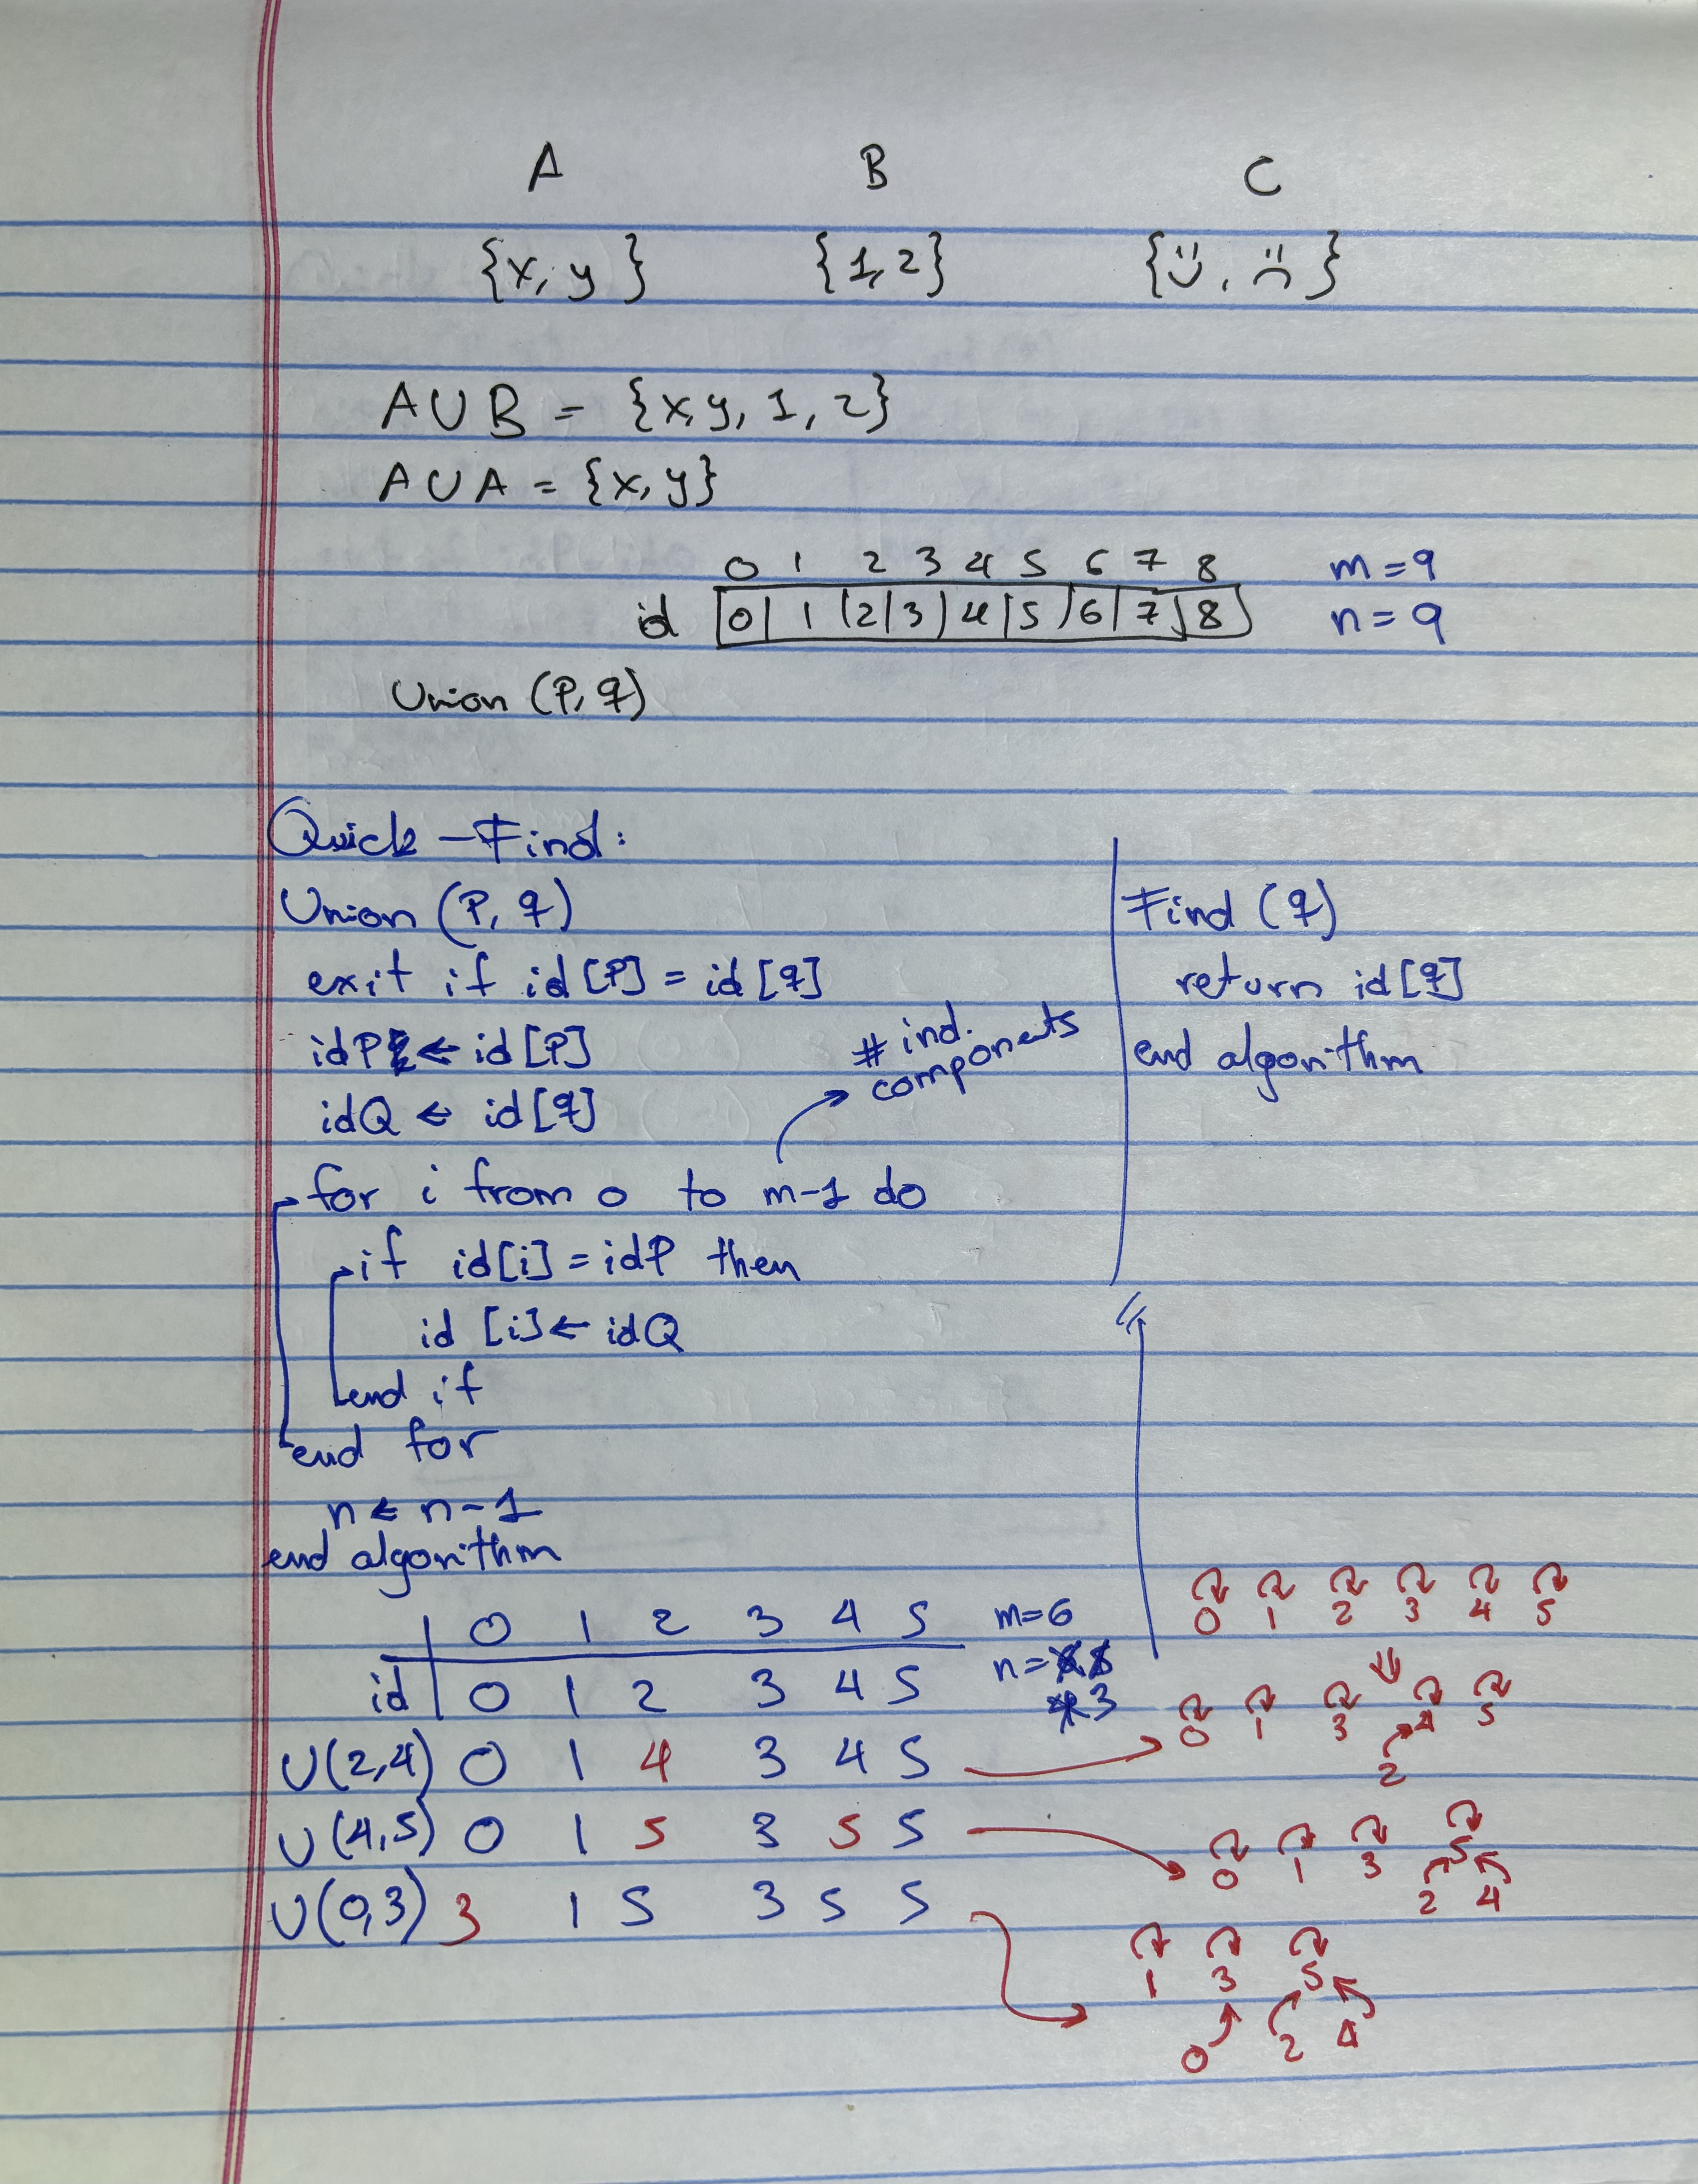 A B C
{x, y} {1,2} {☺, ☹}
A ∪ B = {x,y, 1, 2}
A ∪ A = {x,y}
0 1 2 3 4 5 6 7 8 m=9
id 0 1 2 3 4 5 6 7 8 n=9
Union (P, q)
Quick-Find:
Union (P, q)
exit if id[P] = id[q]
idP ← id[P]
idQ ← id[q]
# ind.
components
for i from 0 to m-1 do
if id[i] = idP then
id [i] ← idQ
end if
end for
n ← n-1
end algorithm
Find (q)
return id[q]
end algorithm
0 1 2 3 4 5 m=6
id 0 1 2 3 4 5 n= 3
U(2,4) 0 1 4 3 4 5
U(4,5) 0 1 5 3 5 5
U(0,3) 3 1 5 3 5 5
0 1 2 3 4 5
0 1 3 4 5
2
0 1 3 5
2 4
1 3 5
0 2 4